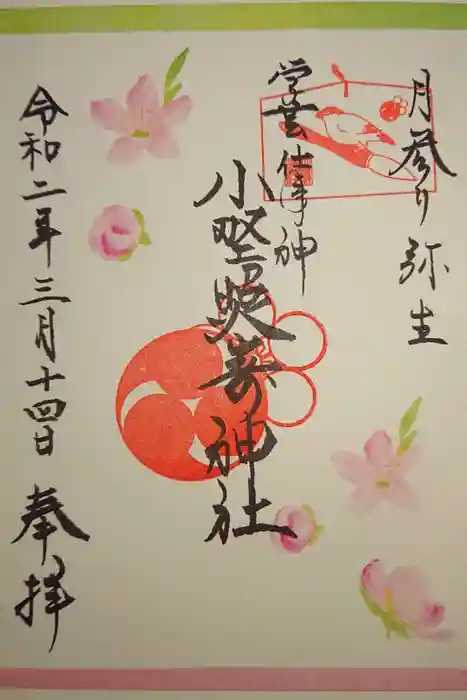 月参り 弥生
学芸仕事神
小野照崎神社
令和二年三月十四日 奉拝